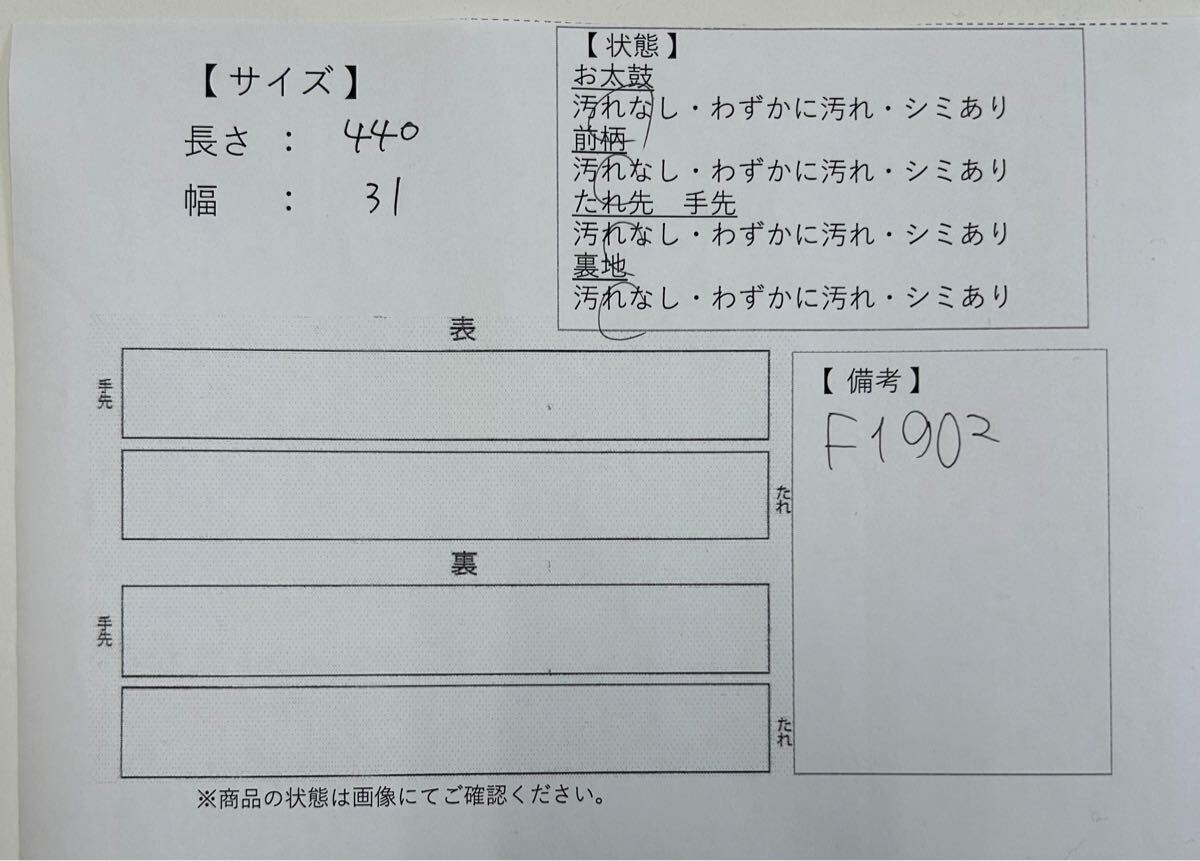 【サイズ】
長さ ： 440
幅 ： 31
【状態】
お太鼓
汚れなし・わずかに汚れ・シミあり
前柄
汚れなし・わずかに汚れ・シミあり
たれ先　手先
汚れなし・わずかに汚れ・シミあり
裏地
汚れなし・わずかに汚れ・シミあり
表
手先
たれ
裏
手先
たれ
【備考】
F1902
※商品の状態は画像にてご確認ください。